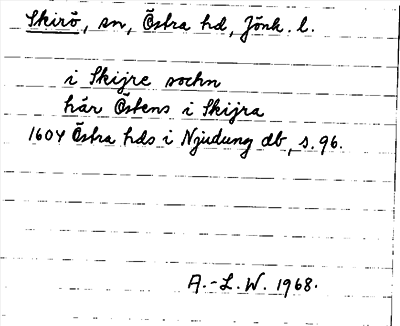 Skirö, sn, Östra hd, Jönk. l.
i Skijre sochn
här Östens i Skijra
1604 Östra hds i Njudung db, s. 96.
A.-L. W. 1968.